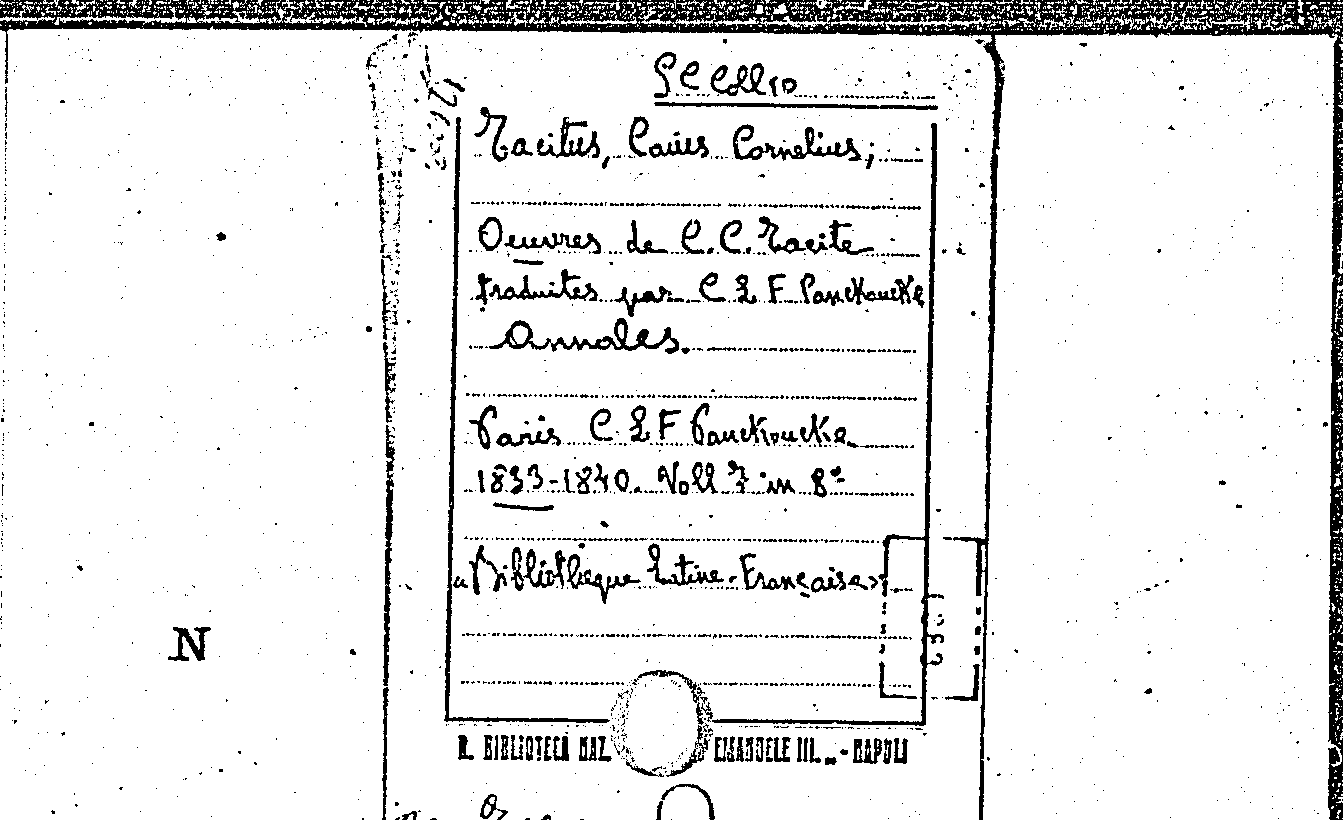 Tacitus, Caius Cornelius;
Oeuvres de C.C. Tacite
traduites par C L F Panckoucke
Annales.
Paris C L F Panckoucke
1833-1840. Voll 7 in 8º
«Bibliotheque Latine-Française»
N
R. BIBLIOTECA NAZ. EMANUELE III. - NAPOLI